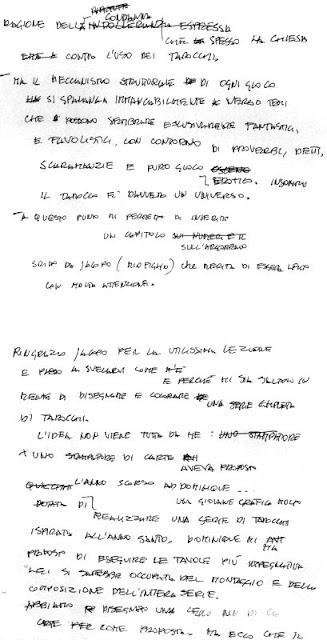 CONDANNA
RAGIONE DELLA ESPRESSA
CHE SPESSO LA CHIESA
CONTRO L'USO DEI TAROCCHI.
MA IL MECCANISMO STRUTTURALE DI OGNI GIOCO
SI SPALANCA IMMANCABILMENTE VERSO TEMI
CHE POSSONO SEMBRARE ESCLUSIVAMENTE FANTASTICI,
E FAVOLISTICI, CON CONTORNO DI PROVERBI, DETTI,
SCARAMANZIE E PURO GIOCO
EROTICO. INSOMMA
IL TAROCCO E' DAVVERO UN UNIVERSO.
A QUESTO PUNTO MI PERMETTO DI INSERIRE
UN CAPITOLO
SULL'ARGOMENTO
JACOPO (MIO FIGLIO) CHE MERITA DI ESSERE LETTO
CON MOLTA ATTENZIONE.
RINGRAZIO JACOPO PER LA UTILISSIMA LEZIONE
E PASSO A SVELARVI COME
E PERCHÉ MI SIA SALTATO IN
MENTE DI DISEGNARE E COLORARE
UNA SERIE COMPLETA
DI TAROCCHI.
L'IDEA NON VIENE TUTTA DA ME: UNO STAMPATORE
UNO DI CARTE
AVEVA PROPOSTO
L'ANNO SCORSO AD DOMINIQUE...
UNA GIOVANE GRAFICA MOLTO
DOTATA DI
REALIZZARE UNA SERIE DI TAROCCHI
ISPIRATA ALL'ANNO SANTO. DOMINIQUE MI
PROPOSTO DI ESEGUIRE LE TAVOLE PIÙ IMPEGNATIVE
LEI SI SAREBBE OCCUPATA DEL MONTAGGIO E DELLA
COMPOSIZIONE DELL'INTERA SERIE.
DISEGNATO UNA
CARTE PER COME PROPOSTA. MA ECCO CHE IL